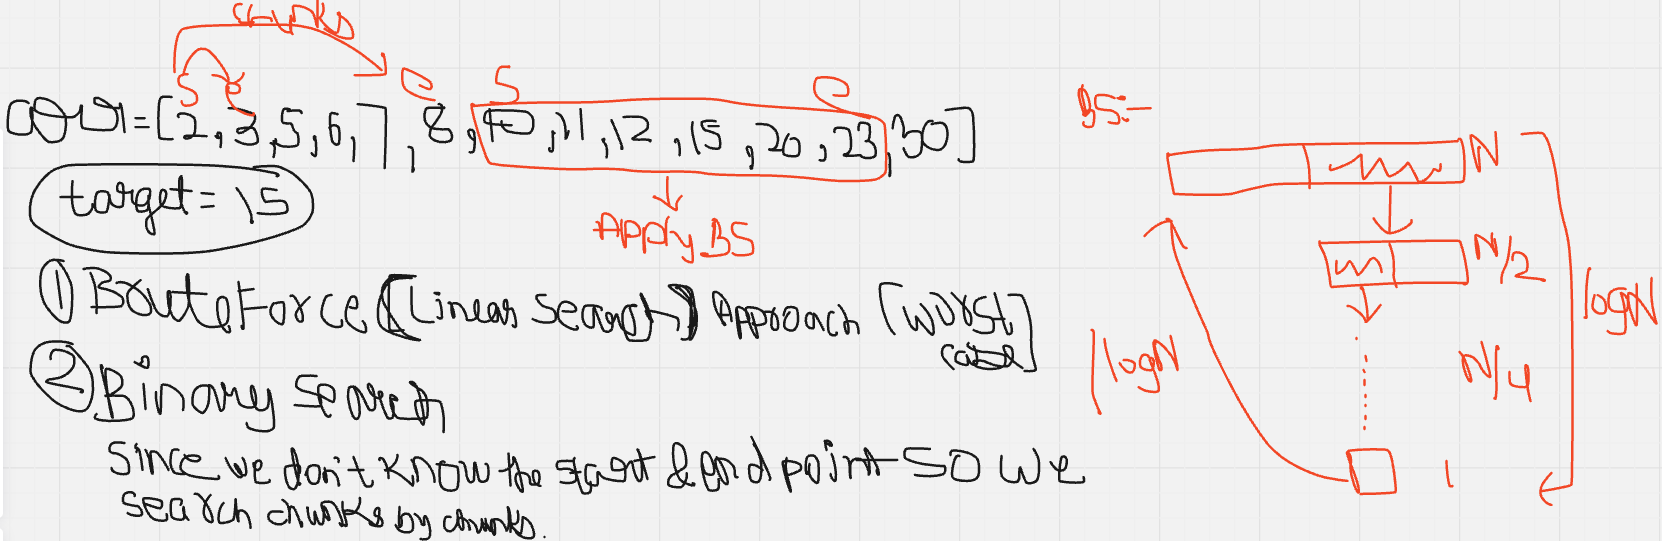 chunks
S e e S e
arr=[2,3,5,6,7,8,10,11,12,15,20,23,30]
target=15
Apply BS
① BruteForce (Linear Search) Approach [worst case]
② Binary Search
Since we don't know the start & end point so we
search chunks by chunks.
BS:-
N
N/2
N/4
1
logN
logN